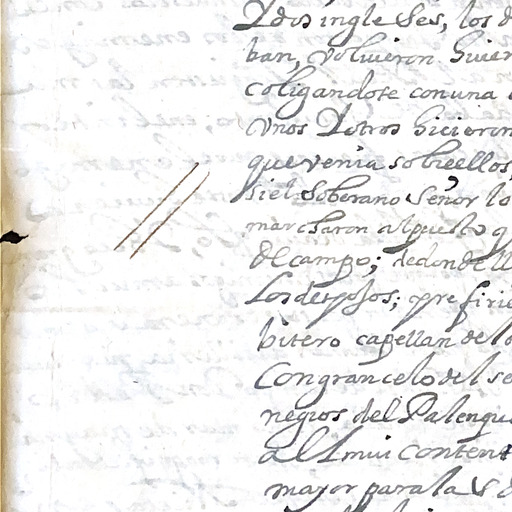 Y dos ingleses, los d
ban, volvieron hicier
coligandose con una
Vnos Y otros hicieron
que venia sobre ellos,
si el Soberano Señor lo
marcharon al puesto q
del campo; de donde ll
Los despojos; prefirie
bitero capellan de lo
Con gran celo del se
negros del Palenque
all mui content
major para la V